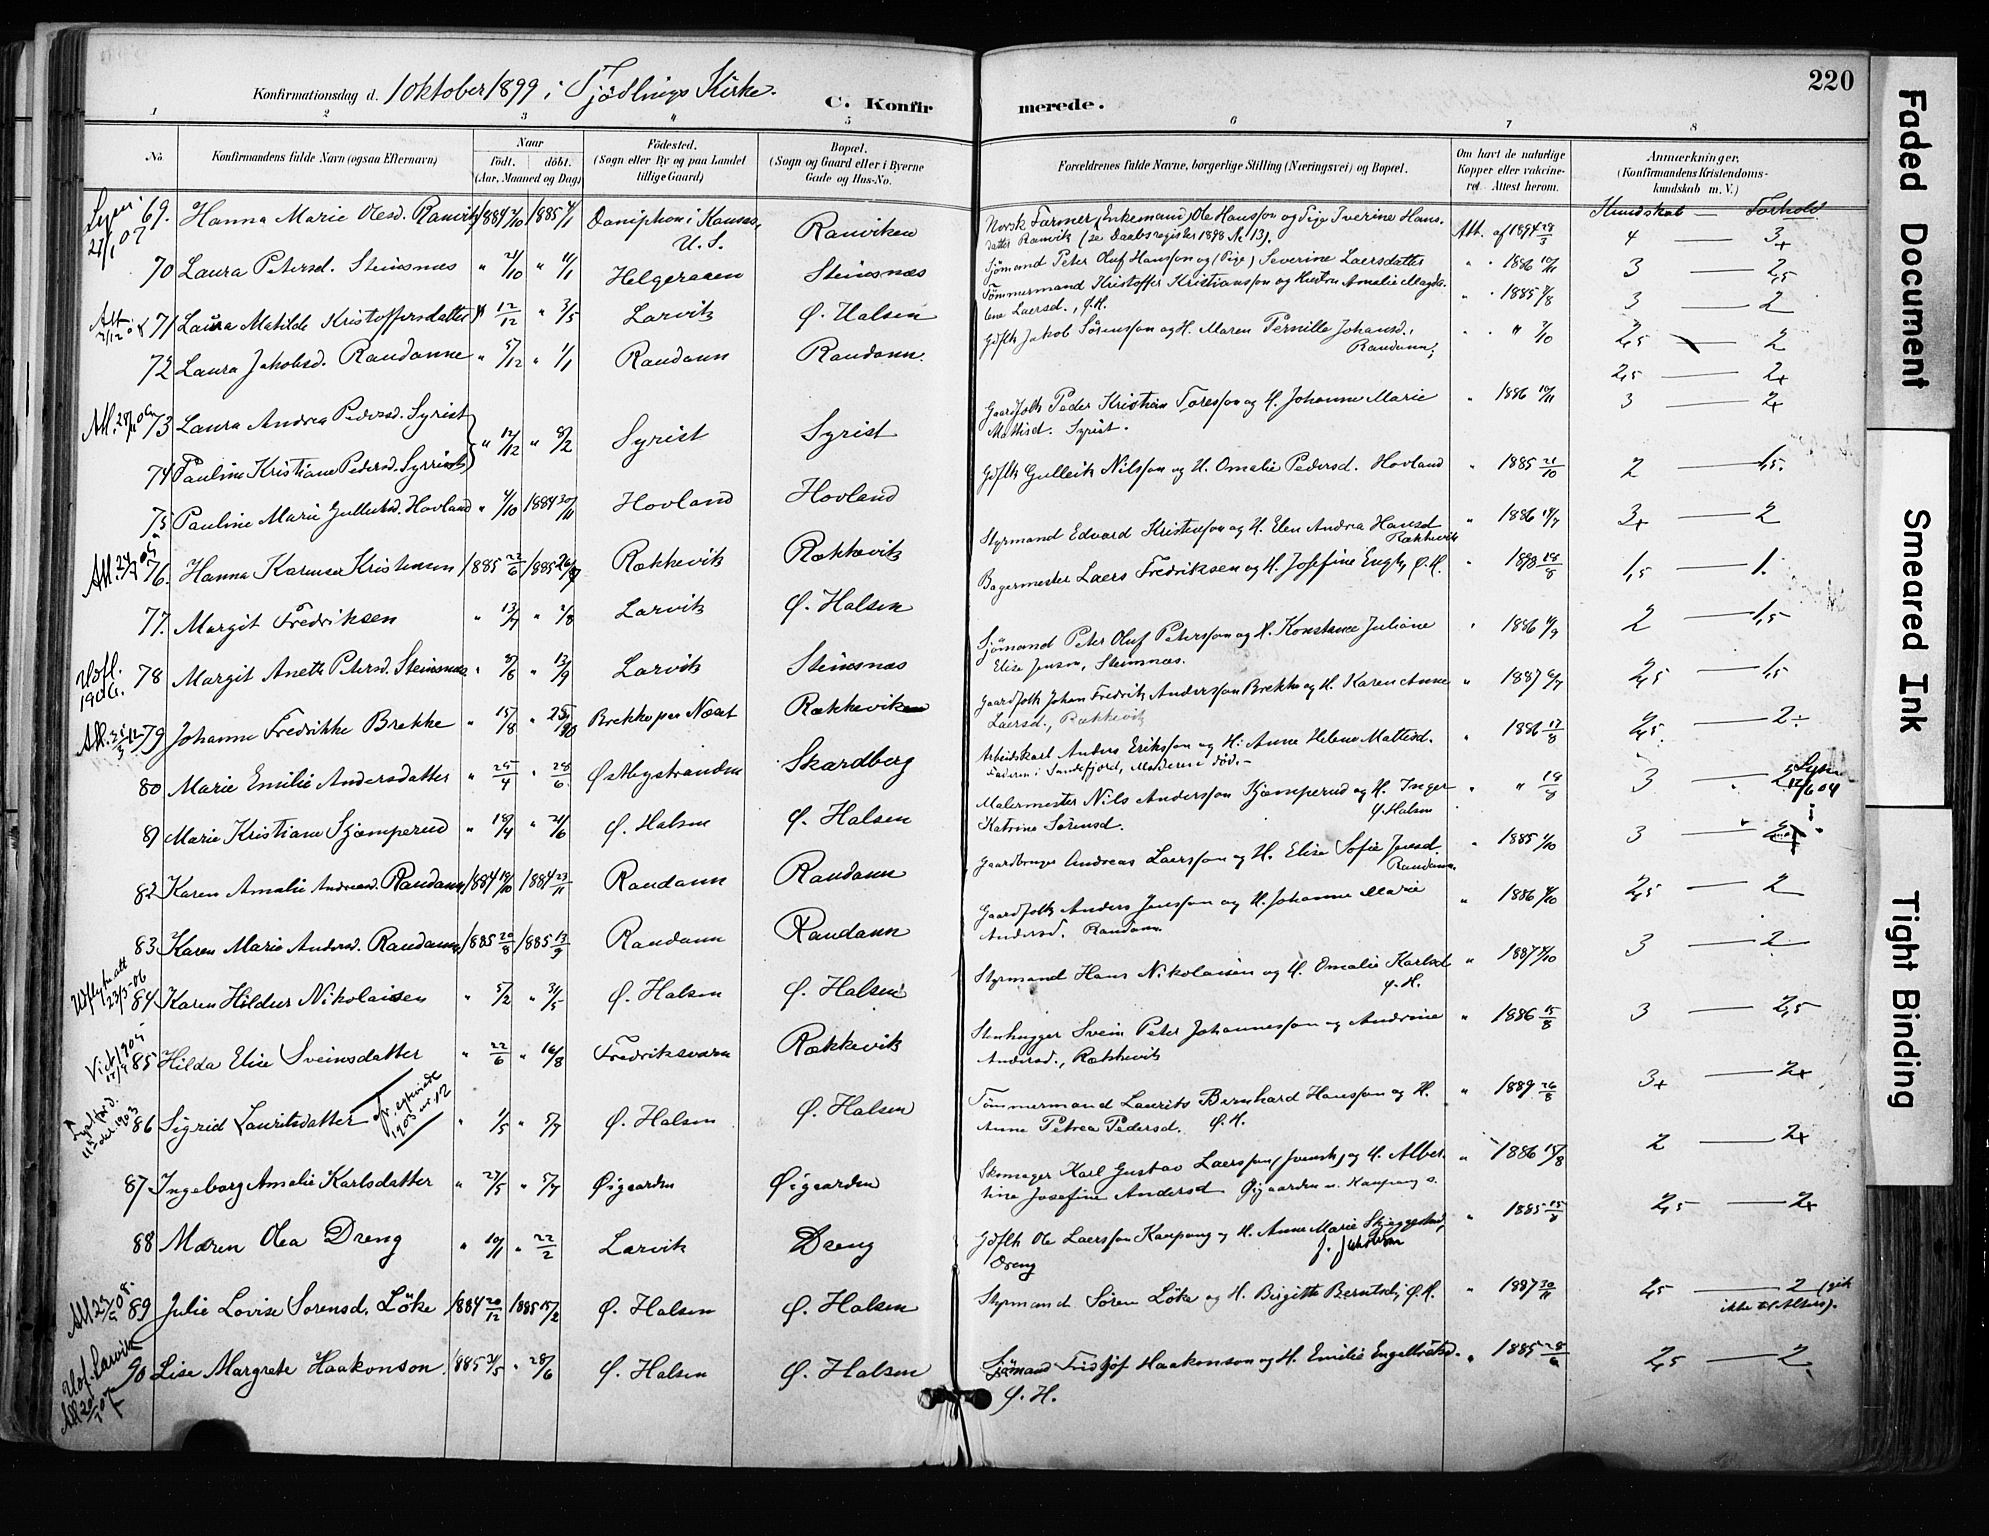 Konfirmationsdag d. 1 Oktober 1899 i Tjødlings Kirke.
C. Konfirmerede.
220
1 2 3 4 5 6 7 8
No. Konfirmandens fulde Navn (ogsaa Efternavn) Naar født. døbt. (Aar, Maaned og Dag) Fødested. (Sogn eller By og paa Landet tillige Gaard) Bopæl. (Sogn og Gaard eller i Byerne Gade og Hus-No. Forældrenes fulde Navne, borgerlige Stilling (Næringsvei) og Bopæl. Om havt de naturlige Kopper eller vaccineret. Attest herom. Anmærkninger. (Konfirmandens Kristendomskundskab m. V.)
Kundskab — Forhold
69. Hanna Marie Olesd. Ranvik 1884 1885 4/1 Doniphon i Kansas, U. S. Ranviken Norsk Farmer (Enkemand) Ole Hansson og Pige Iverine Hansdatter Ranvik (se Daabsregister 1898 Nr 13). Att. af 1894 4 — 3+
70 Laura Petersd. Steinsnæs " 21/10 " 11/1 Helgeraaen Steinsnæs Sjømand Peter Oluf Hansson og (Pige) Severine Laersdatter " 1886 10/11 3 — 2,5
71 Laura Matilde Kristoffersdatter " 12/12 " 3/5 Larvik Ø. Halsen Tømmermand Kristoffer Kristiansson og Hustru Amalie Magdalene Laersd., Ø.H. " 1885 3 — 2
72 Laura Jakobsd. Raudanne " 5/12 " 1/1 Raudann Raudann. Gdflk Jakob Sørensson og H. Maren Pernille Johansd., Raudann. " " 7/10 2,5 — 2
2,5 — 2+
73 Laura Andrea Pedersd. Syrist " 12/12 " 8/2 Syrist Syrist Gaardfolk Peder Kristian Toresson og H. Johanne Marie Mattisd. Syrist. " 1886 10/11 3 — 2+
74 Pauline Kristiane Pedersd. Syrrist
75 Pauline Marie Gulleiksd. Hovland " 4/10 1884 30/11 Hovland Hovland Gdflk Gulleik Nilsson og H. Omalie Pedersd. Hovland " 1885 21/10 2 — 1,5.
76. Hanna Karense Kristensen 1885 22/6 1885 Rækkevik Rækkevik Styrmand Edvard Kristensson og H. Elen Andrea Hansd Rækkevik " 1886 14/7 3+ — 2
77. Margit Fredriksen " 13/7 " 2/8 Larvik Ø. Halsen Bagermester Laers Fredriksen og H. Josefine Engh, Ø.H. " 1898 18/8 1,5 — 1.
78 Margit Anette Petersd. Steinsnæs " 8/6 " 13/9 Larvik Steinsnæs Sjømand Peter Oluf Petersson og H. Konstance Juliane Elise Jensen, Steinnæs. " 1886 2 — 1,5
79 Johanne Fredrikke Brekke " 15/8 " Brekke per Næset Rækkeviken Gaardfolk Johan Fredrik Andersson Brekke og H. Karen Anne Laersd., Rækkevik " 1887 6/7 2,5 — 1,5
80 Marie Emilie Andersdatter " 25/4 " 28/6 Østbystranden Skardberg Arbeidskarl Anders Eriksson og H. Anne Helene Mattisd. Faderen i Sandefjord, Moderen død. — " 1886 17/8 2,5 — 2÷
81 Marie Kristiane Kjæmperud " 19/4 " 21/6 Ø. Halsen Ø. Halsen Malermester Nils Andersson Kjæmperud og H. Inger Katrine Sørensd. Ø. Halsen " " 19/8 3 —
82 Karen Amalie Andreasd. Raudann 1884 19/10 1884 23/11 Raudann Raudann Gaardbruger Andreas Laersson og H. Elise Sofie Jensd. Raudann. " 1885 3 —
83 Karen Marie Andersd. Raudann 1885 20/8 1885 13/9 Raudann Raudann Gaardfolk Anders Jensson og H. Johanne Marie Andersd. Raudann " 1886 2,5 — 2
84 Karen Hildur Nikolaisen " 5/2 " 31/5 Ø. Halsen Ø. Halsen Styrmand Hans Nikolaisen og H. Omalie Karlsd Ø. H. " 1887 3 — 2
85 Hilda Elise Sveinsdatter " 22/6 " 16/8 Fredriksværn Rækkevik Stenhugger Svein Peter Johannesson og Andrine Andersd., Rækkevik " 1886 15/8 3 — 2,5
86 Sigrid Lauritsdatter " 1/5 " 5/7 Ø. Halsen Ø. Halsen Tømmermand Laurits Bernhard Hansson og H. Anne Petrea Pedersd. Ø.H. " 1889 26/8 3+ — 2+
87 Ingeborg Amalie Karlsdatter " 27/5 " 5/7 Øigaarden Øigaarden Skomager Karl Gustav Laersson (svensk) og H. Albertine Josefine Andersd Øigaarden u. Kaupang s. " 1886 15/8 2 — 2+
88 Maren Olea Dreng " 10/1 " 22/2 Larvik Dreng Gdflk Ole Laersson Kaupang og H. Anne Marie Skjeggestad, Dreng " 1885 15/8 2,5 — 2+
89 Julie Lovise Sørensd. Löke 1884 20/12 1885 15/2 Ø. Halsen Ø. Halsen Styrmand Søren Löke og H. Birgitte Berntsd, Ø.H. " 1887 30/11 2,5 — 2 (gik ikke til Alters).
90 Lise Margrete Haakonson. 1885 31/5 " 28/6 Ø. Halsen Ø. Halsen Sjømand Fridtjof Haakonson og H. Emilie Engelbrektsd. Ø. H. " 1885 2,5 — 2
Faded Document
Smeared Ink
Tight Binding